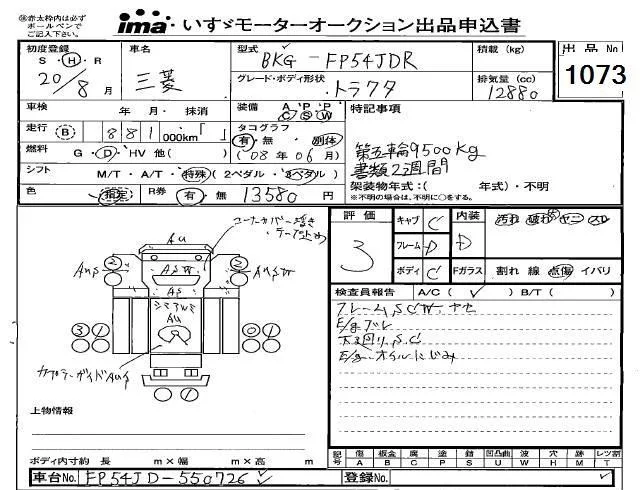 ㊟赤太枠内は必ず
ボールペンで
ご記入下さい。
ima いすゞモーターオークション出品申込書
初度登録 S・H・R 20/8月
車名 三菱
型式 BKG-FP54JDR
グレード・ボディ形状 トラクタ
積載 (kg)
排気量 (cc) 12880
出品No 1073
車検 年 月・抹消
装備 A P P C S W
特記事項
走行 B 881000km「 」
タコグラフ 有・無・別体
第五輪9500kg
燃料 G・D・HV 他( )
('08年06月)
書類2週間
シフト M/T・A/T・特殊(2ペダル・3ペダル)
架装物年式:( 年式)・不明
※不明の場合は、不明に○をする。
色
R券 有・無 13580円
コーナーカバー
テープ止め
AU
AUS
ASW
AS
AU
2 2
3 1 0 1
カプラーガイドAUS
評価 3
キャブ C
フレーム D
ボディ C
内装 D
汚れ 破れ ヤニ スレ
Fガラス 割れ 線 点傷 イバリ
検査員報告 A/C(✓) B/T( )
フレームSCW.ヤセ
E/gブレ
下廻りS.C
E/g.オイルにじみ
上物情報
ボディ内寸約 長 m×幅 m×高 m
記号 傷A 板金B 腐C 塗P 錆S 凹凸曲U 波W 穴H 跡M レンズ割T
車台No. FP54JD-550726 ✓
登録No. ✓